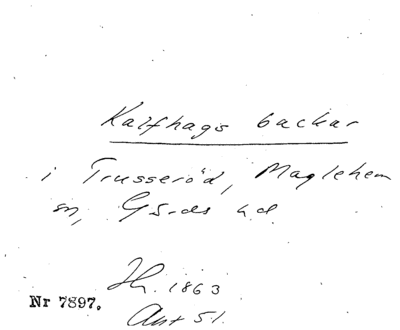 Kalfhags backar
i Trusseröd, Maglehem
sn, Gärds hd.
Hz. 1863
Nr 7897.
Ant 51.